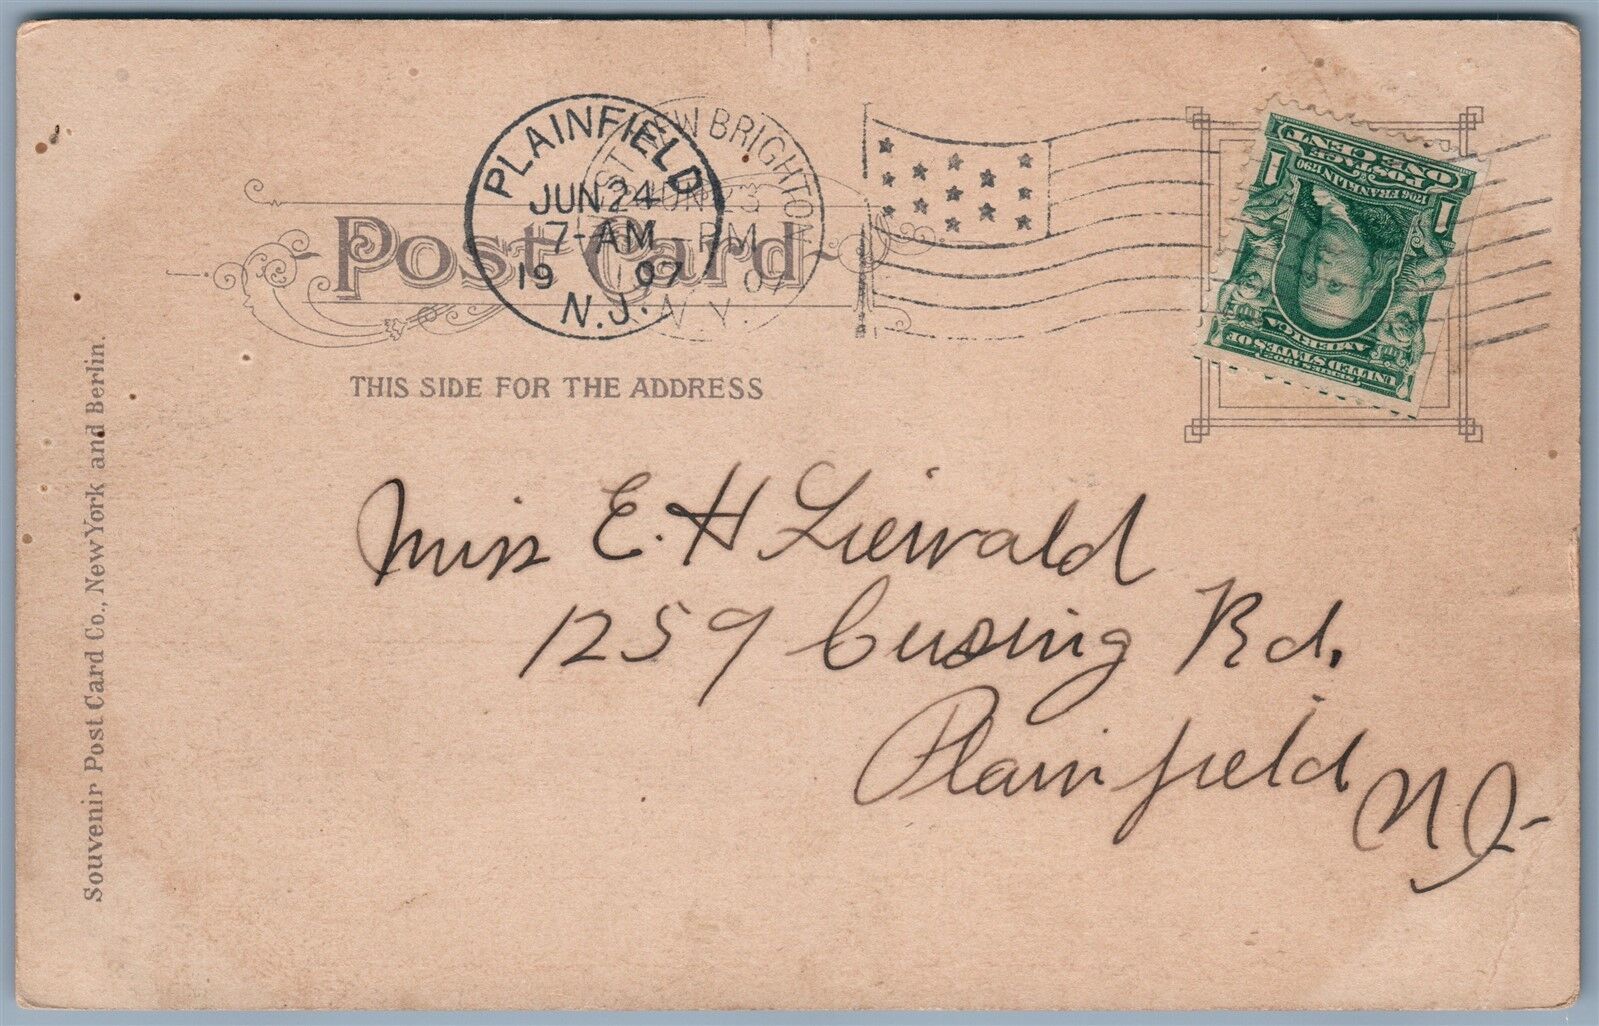 PLAINFIELD
JUN 24
7-AM
19 07
N.J.
NEW BRIGHTON
JUN 23
PM
07
N.Y.
Post Card
THIS SIDE FOR THE ADDRESS
ONE CENT
POSTAGE
1706 FRANKLIN 1790
1 1
UNITED STATES OF
AMERICA
SERIES 1902
Miss E. H Liewald
1259 Cusing Rd.
Plainfield N J-
Souvenir Post Card Co., New York and Berlin.